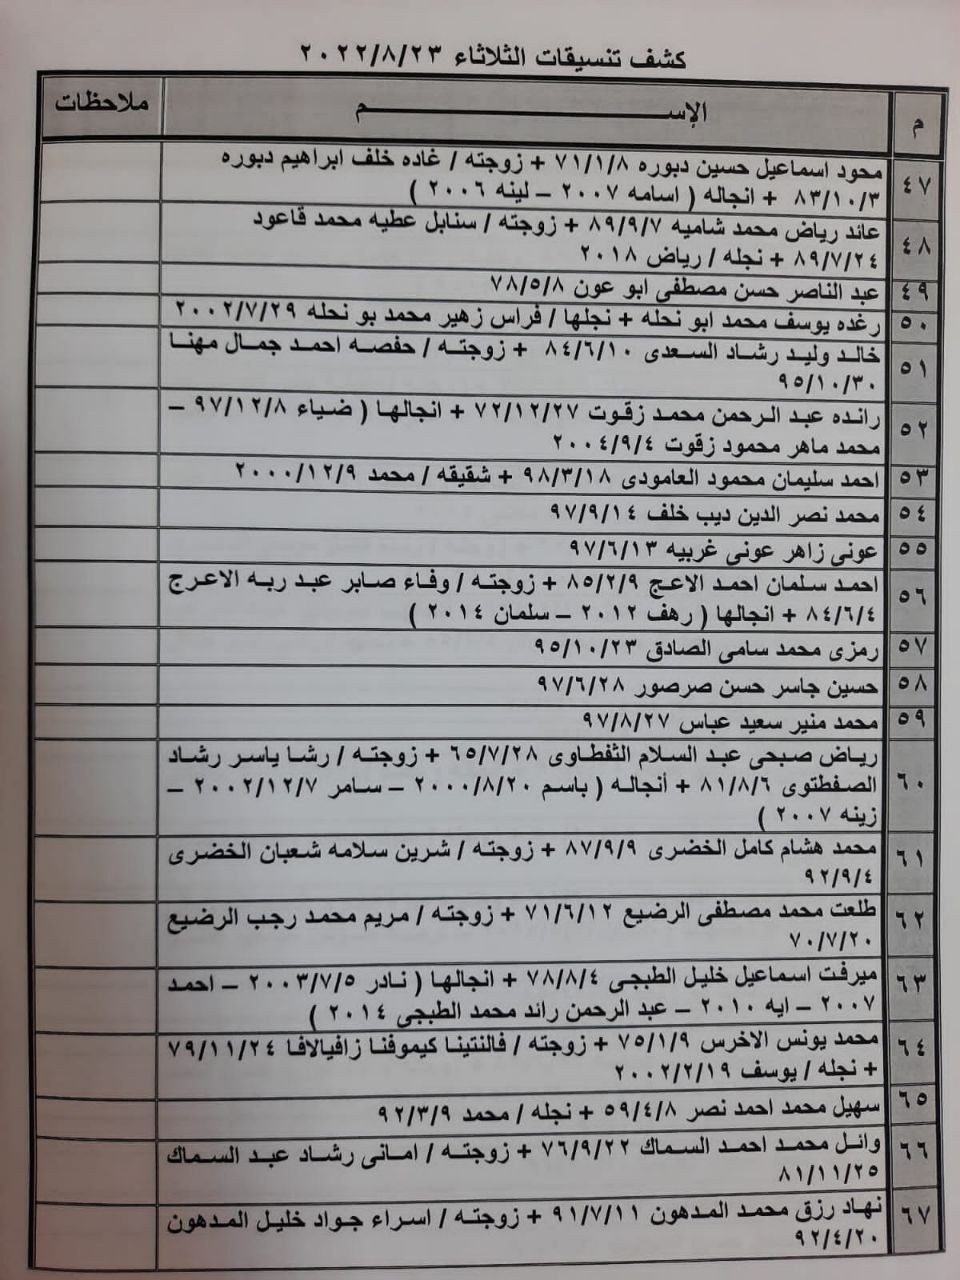 كشف تنسيقات الثلاثاء ٢٠٢٢/٨/٢٣
م الإســـــــــــم ملاحظات
٤٧ محود اسماعيل حسين دبوره ٧١/١/٨ + زوجته / غاده خلف ابراهيم دبوره
٨٣/١٠/٣ + انجاله ( اسامه ٢٠٠٧ – لينه ٢٠٠٦ )
٤٨ عائد رياض محمد شاميه ٨٩/٩/٧ + زوجته / سنابل عطيه محمد قاعود
٨٩/٧/٢٤ + نجله / رياض ٢٠١٨
٤٩ عبد الناصر حسن مصطفى ابو عون ٧٨/٥/٨
٥٠ رغده يوسف محمد ابو نحله + نجلها / فراس زهير محمد بو نحله ٢٠٠٢/٧/٢٩
٥١ خالد وليد رشاد السعدى ٨٤/٦/١٠ + زوجته / حفصه احمد جمال مهنا
٩٥/١٠/٣٠
٥٢ رانده عبد الرحمن محمد زقوت ٧٢/١٢/٢٧ + انجالها ( ضياء ٩٧/١٢/٨ –
محمد ماهر محمود زقوت ٢٠٠٤/٩/٤
٥٣ احمد سليمان محمود العامودى ٩٨/٣/١٨ + شقيقه / محمد ٢٠٠٠/١٢/٩
٥٤ محمد نصر الدين ديب خلف ٩٧/٩/١٤
٥٥ عونى زاهر عونى غربيه ٩٧/٦/١٣
٥٦ احمد سلمان احمد الاعج ٨٥/٢/٩ + زوجته / وفاء صابر عبد ربه الاعرج
٨٤/٦/٤ + انجالها ( رهف ٢٠١٢ – سلمان ٢٠١٤ )
٥٧ رمزى محمد سامى الصادق ٩٥/١٠/٢٣
٥٨ حسين جاسر حسن صرصور ٩٧/٦/٢٨
٥٩ محمد منير سعيد عباس ٩٧/٨/٢٧
٦٠ رياض صبحى عبد السلام الثفطاوى ٦٥/٧/٢٨ + زوجته / رشا ياسر رشاد
الصفطتوى ٨١/٨/٦ + أنجاله ( باسم ٢٠٠٠/٨/٢٠ – سامر ٢٠٠٢/١٢/٧ –
زينه ٢٠٠٧ )
٦١ محمد هشام كامل الخضرى ٨٧/٩/٩ + زوجته / شرين سلامه شعبان الخضرى
٩٢/٩/٤
٦٢ طلعت محمد مصطفى الرضيع ٧١/٦/١٢ + زوجته / مريم محمد رجب الرضيع
٧٠/٧/٢٠
٦٣ ميرفت اسماعيل خليل الطبجى ٧٨/٨/٤ + انجالها ( نادر ٢٠٠٣/٧/٥ – احمد
٢٠٠٧ – ايه ٢٠١٠ – عبد الرحمن رائد محمد الطبجى ٢٠١٤ )
٦٤ محمد يونس الاخرس ٧٥/١/٩ + زوجته / فالنتينا كيموفنا زافيالافا ٧٩/١١/٢٤
+ نجله / يوسف ٢٠٠٢/٢/١٩
٦٥ سهيل محمد احمد نصر ٥٩/٤/٨ + نجله / محمد ٩٢/٣/٩
٦٦ وائل محمد احمد السماك ٧٦/٩/٢٢ + زوجته / امانى رشاد عبد السماك
٨١/١١/٢٥
٦٧ نهاد رزق محمد المدهون ٩١/٧/١١ + زوجته / اسراء جواد خليل المدهون
٩٢/٤/٢٠